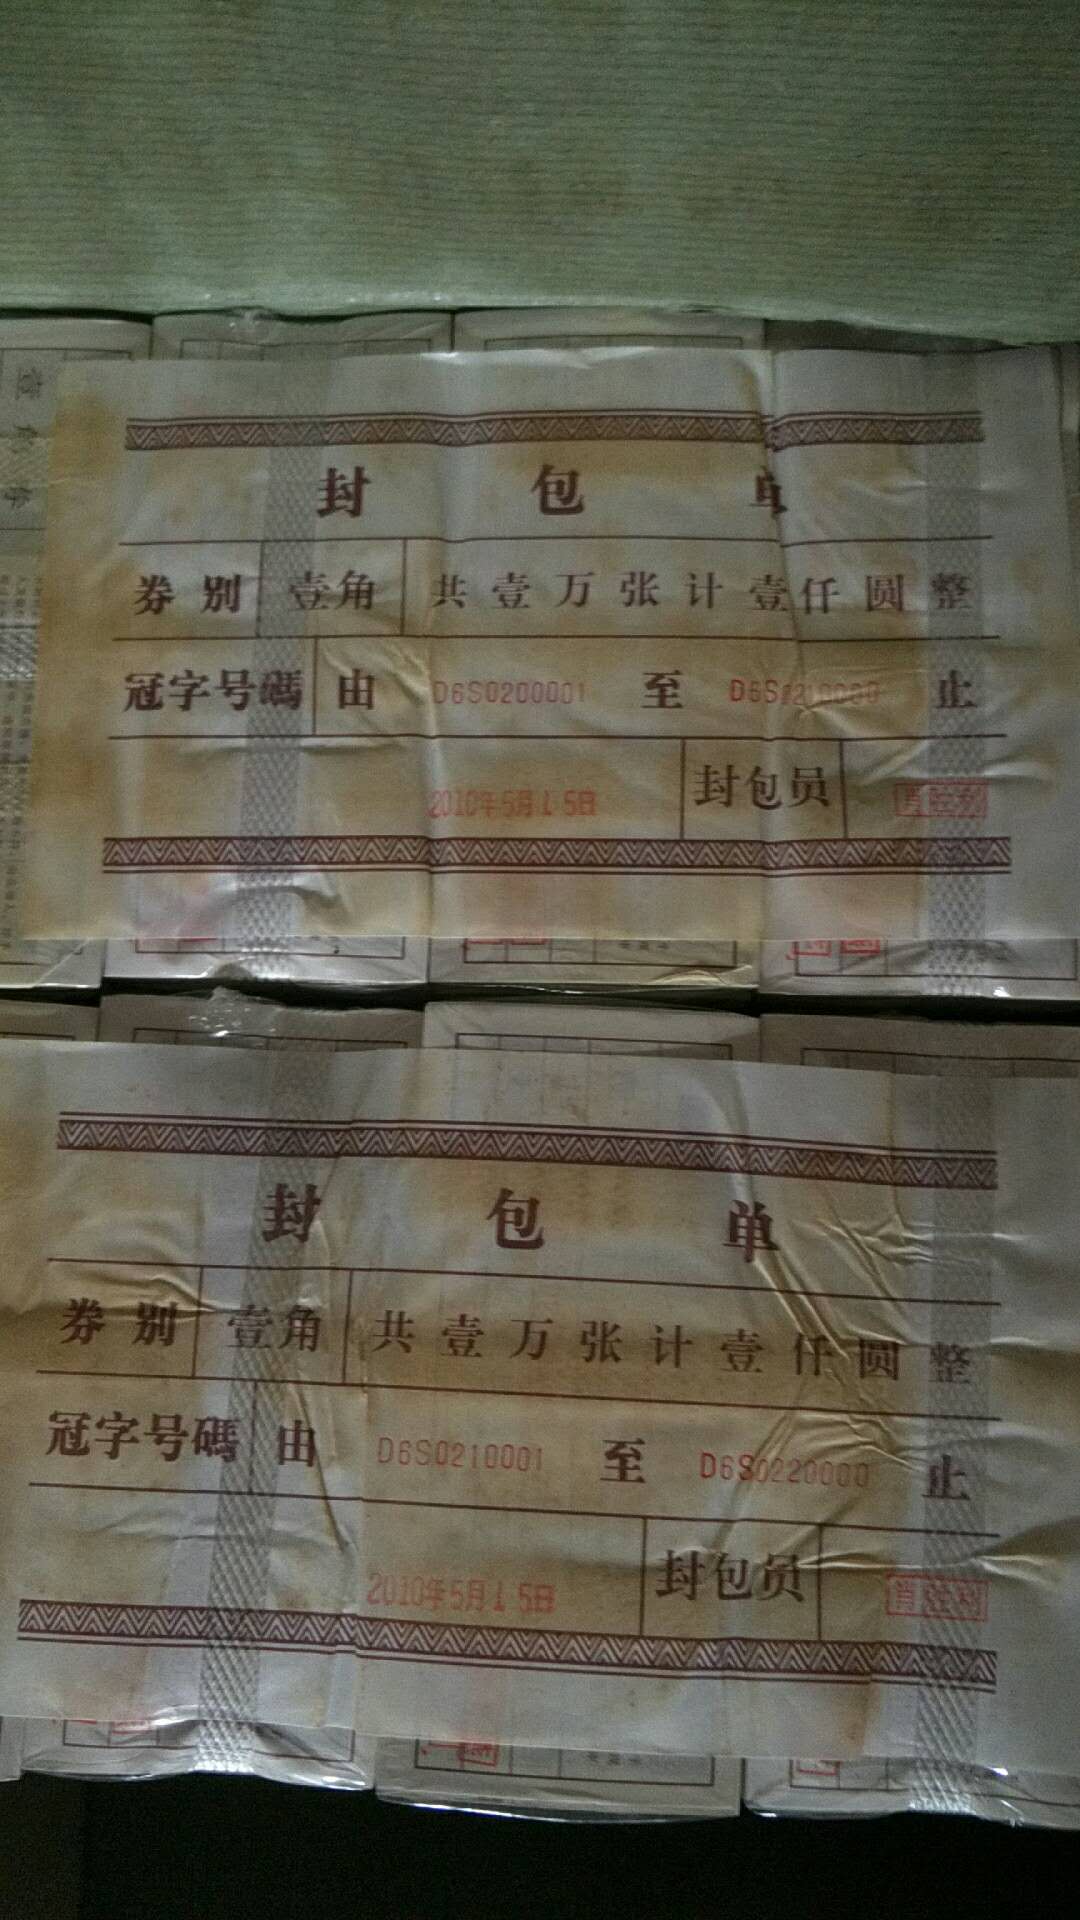 封包单
券别 壹角 共壹万张计壹仟圆整
冠字号碼 由 D6S0200001 至 D6S0210000 止
2010年5月15日 封包员
封包单
券别 壹角 共壹万张计壹仟圆整
冠字号碼 由 D6S0210001 至 D6S0220000 止
2010年5月15日 封包员